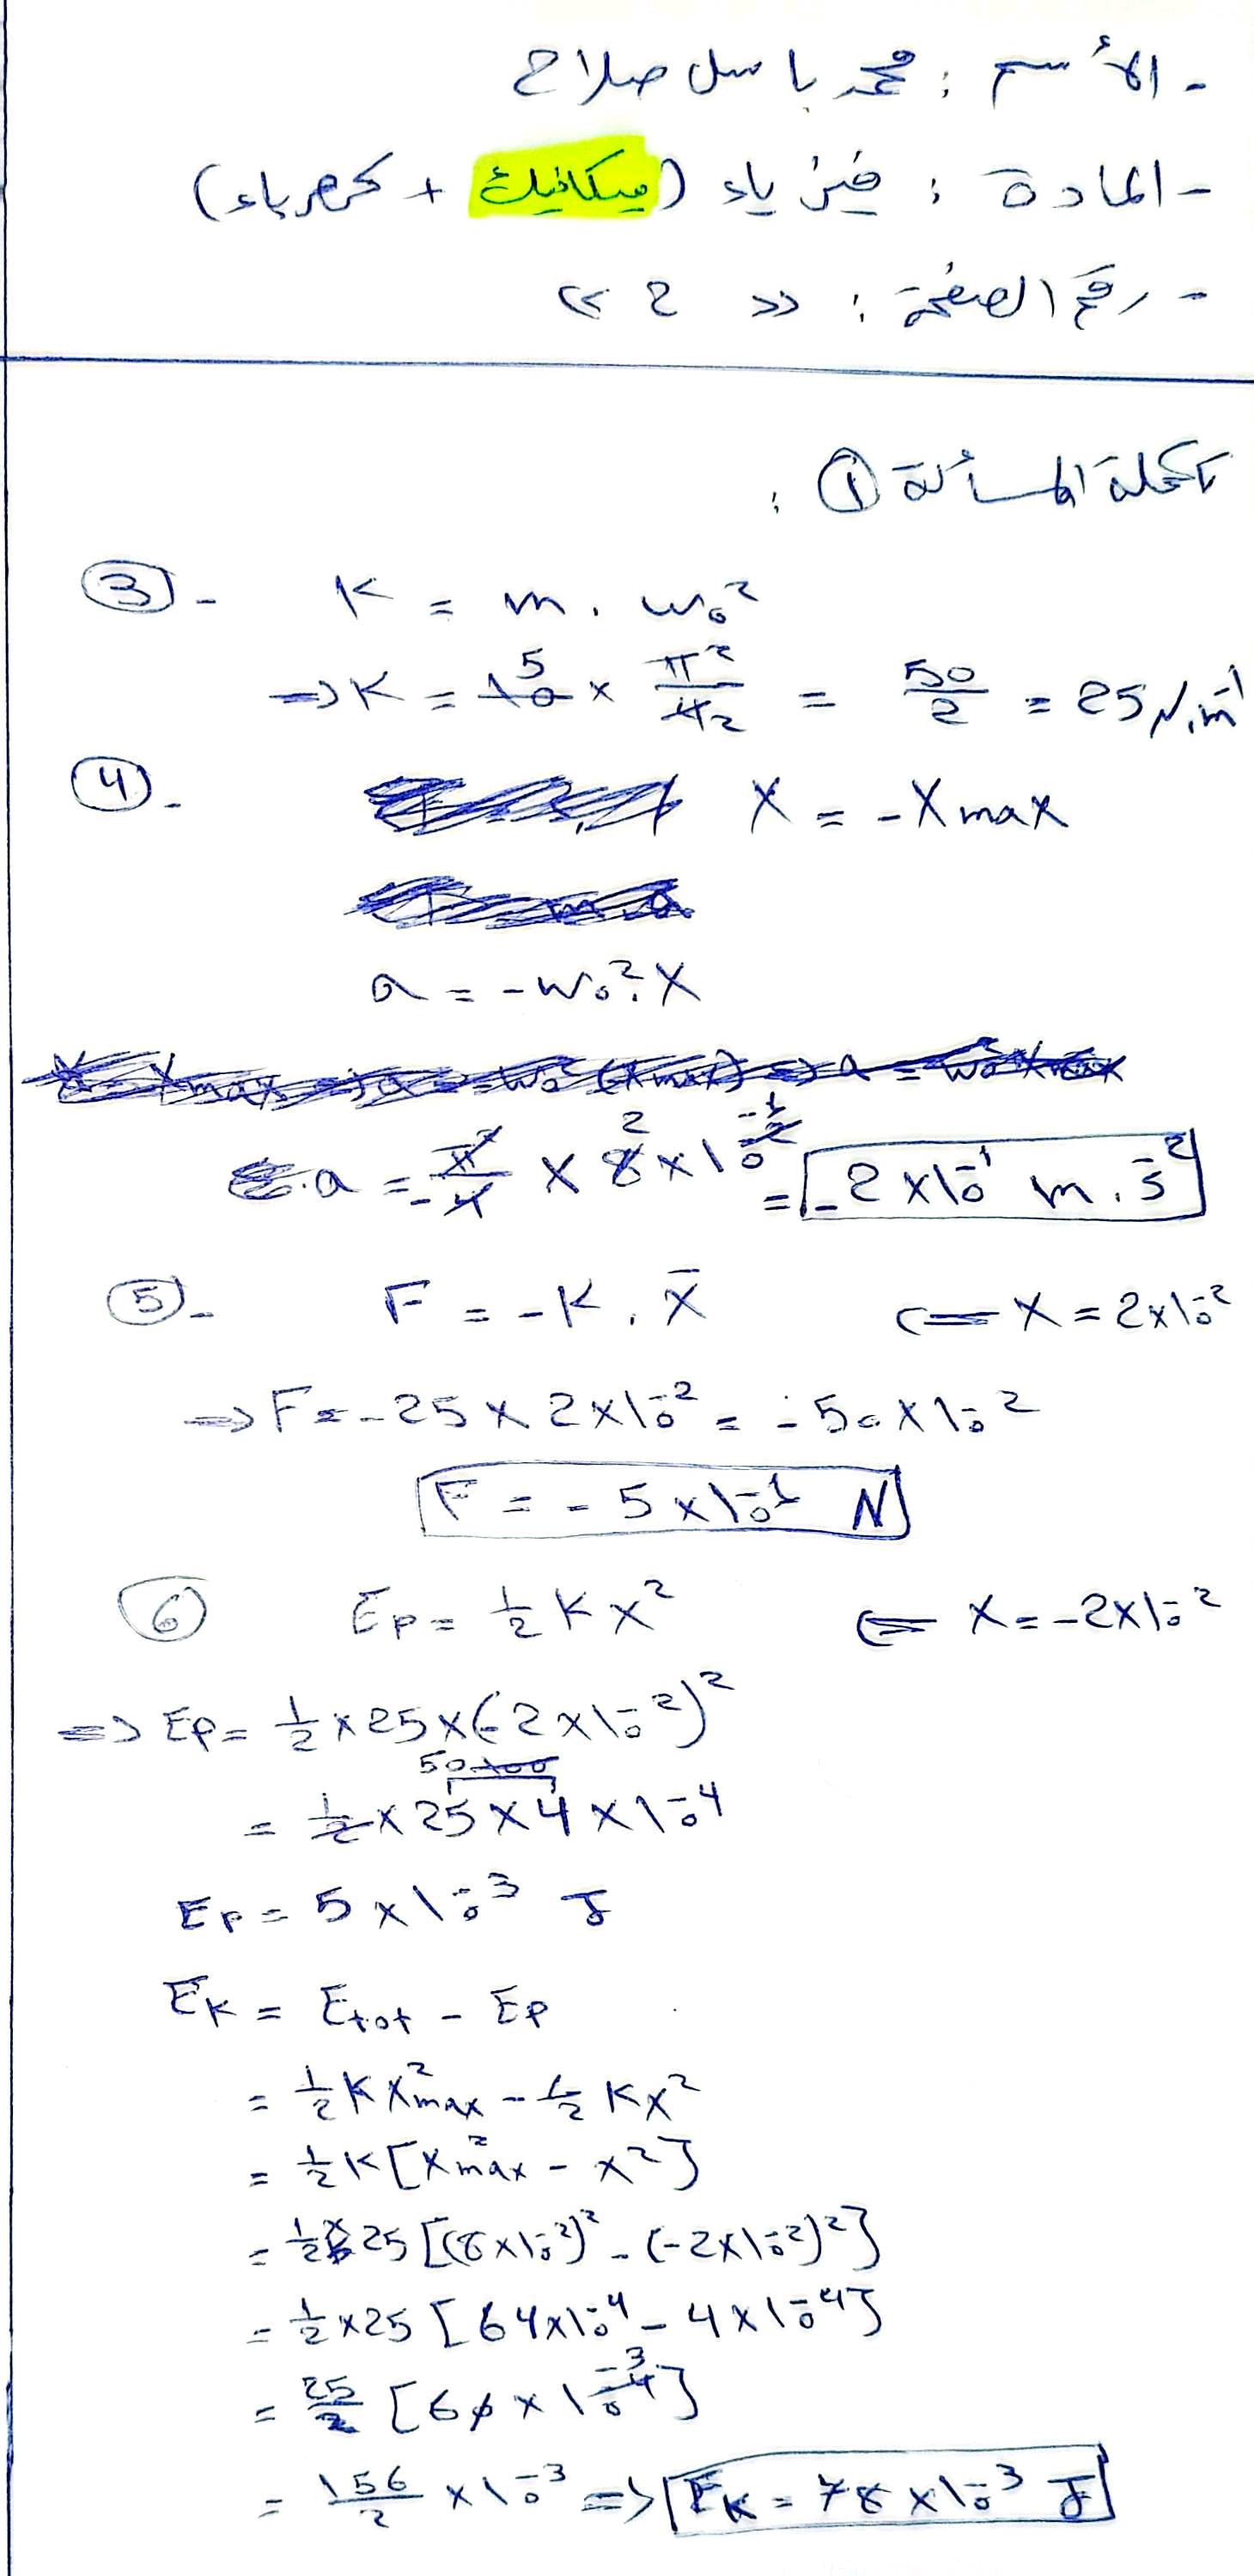 - الأسم : محمد باسل صلاح
- المادة : فيزياء (ميكانيك + كهرباء)
- رقم الصفحة : << 2 >>
تكملة المسألة ① :
③- K = m . ω₀²
=> K = 10 5 × π²/4 2 = 50/2 = 25 N.m⁻¹
④- X = -Xmax
a = -ω₀² . X
a = -π²/4 × 8 2 × 10⁻² ⁻¹ = -2 × 10⁻¹ m . s⁻²
⑤- F = -K . x̄ <= X = 2×10⁻²
=> F = -25 × 2×10⁻² = -50 × 10⁻²
F = -5 × 10⁻¹ N
⑥ Ep = 1/2 K x² <= X = -2×10⁻²
=> Ep = 1/2 × 25 × (-2 × 10⁻²)²
50
= 1/2 × 25 × 4 × 10⁻⁴
Ep = 5 × 10⁻³ J
EK = Etot - Ep
= 1/2 K X²max - 1/2 K x²
= 1/2 K [X²max - x²]
= 1/2 × 25 [(8×10⁻²)² - (-2×10⁻²)²]
= 1/2 × 25 [64×10⁻⁴ - 4×10⁻⁴]
= 25/2 [60 × 10⁻⁴ ⁻³]
= 156/2 × 10⁻³ => EK = 78 × 10⁻³ J